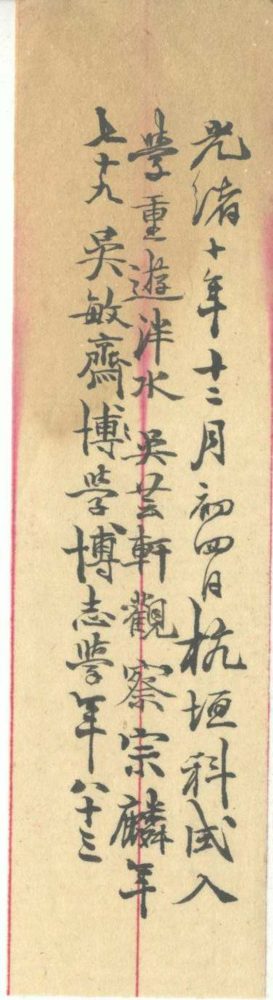 光緒十年十二月初四日杭垣科試入
學重遊泮水 吳芸軒觀察宗麟年
七十九 吳敏齋博學博志學年八十三